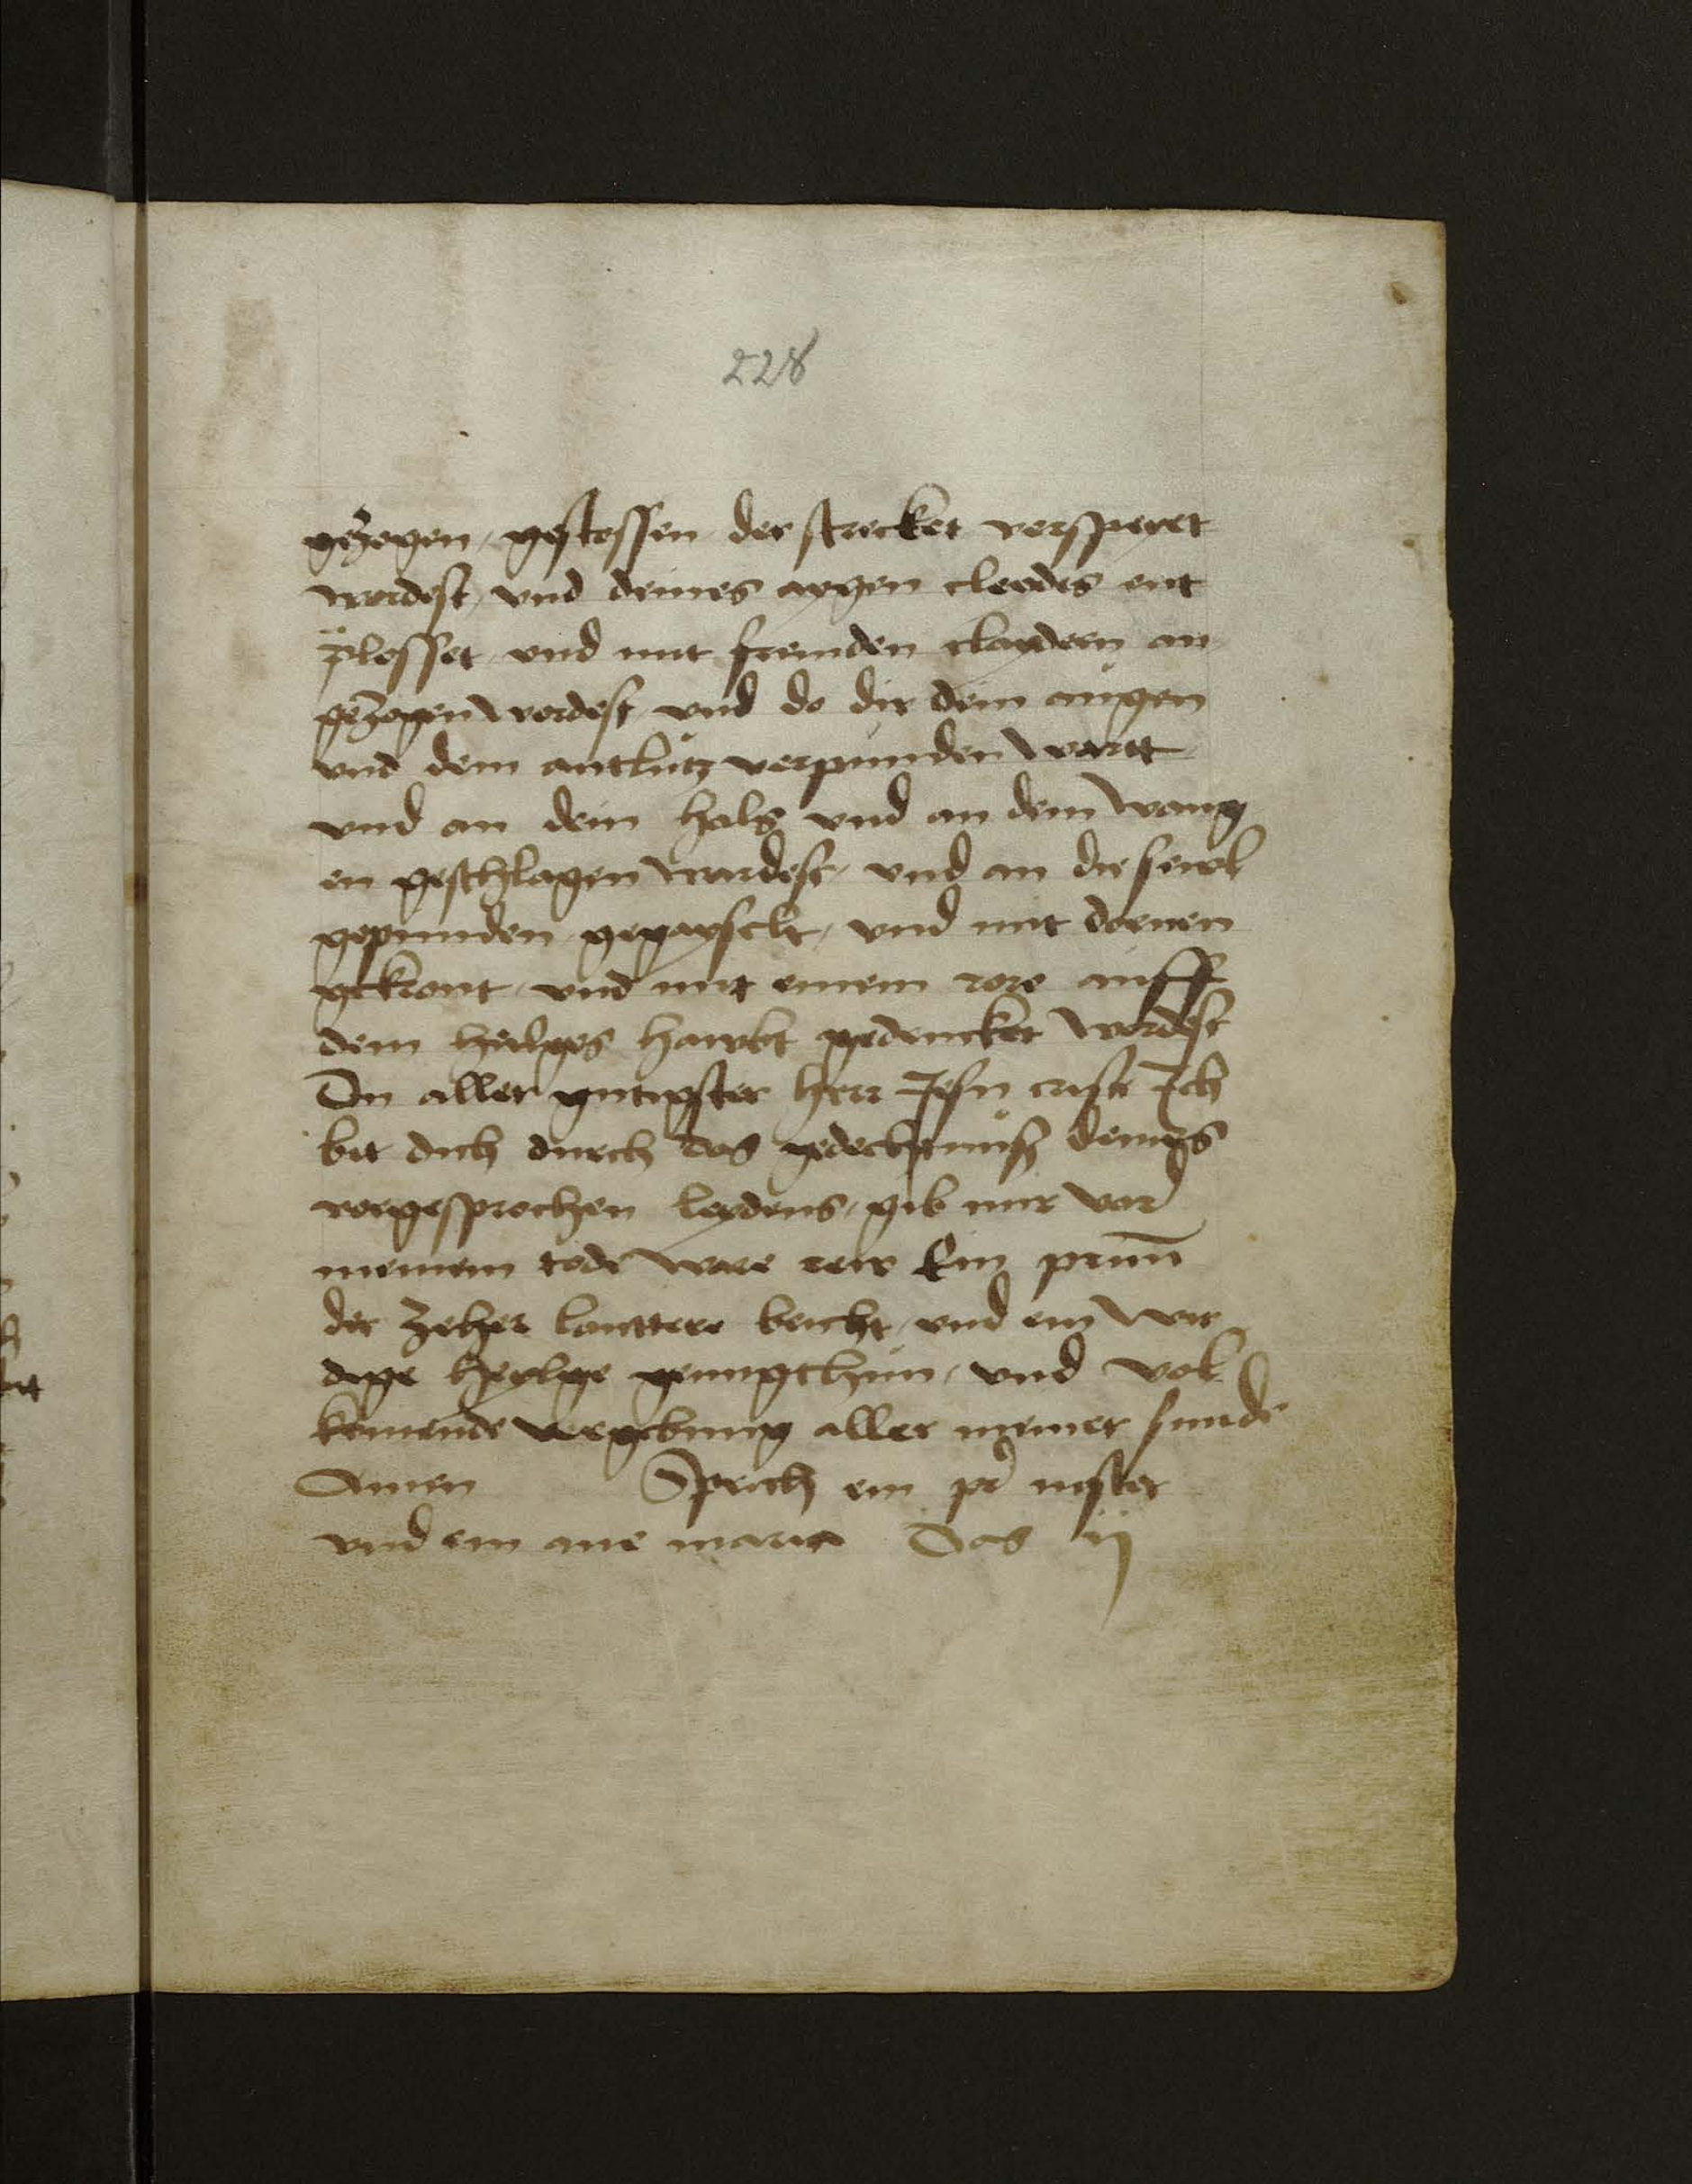 228
gezogen / gestossen der strecket verspeyet
wordest / vnd deines aygen cleydes ent
plosset / vnd mit fremden claydern an
gezogen wordest / vnd do dir dein augen
vnd dein antlutz verpunden wartt
vnd an dein hals vnd an dein wang
en geschlagen wurdest / vnd an die sewl
gepunden gegayselt / vnd mit dornen
gekront / vnd mit einem rore auff
dein heilges hawbt gedrucket wordest
Du aller gutigster herr Jesu criste Ich
bit dich durch das gedechtnuß deines
vorgesprochen leydens / gib mir vor
meinem tode ware rew Ein prunn
der zeher lauttere beicht / vnd ein wir
dige heylge genugthun / vnd vol
kumende vergebung aller meiner sunde
Amen Sprich ein pr noster
vnd ein aue maria Das ij